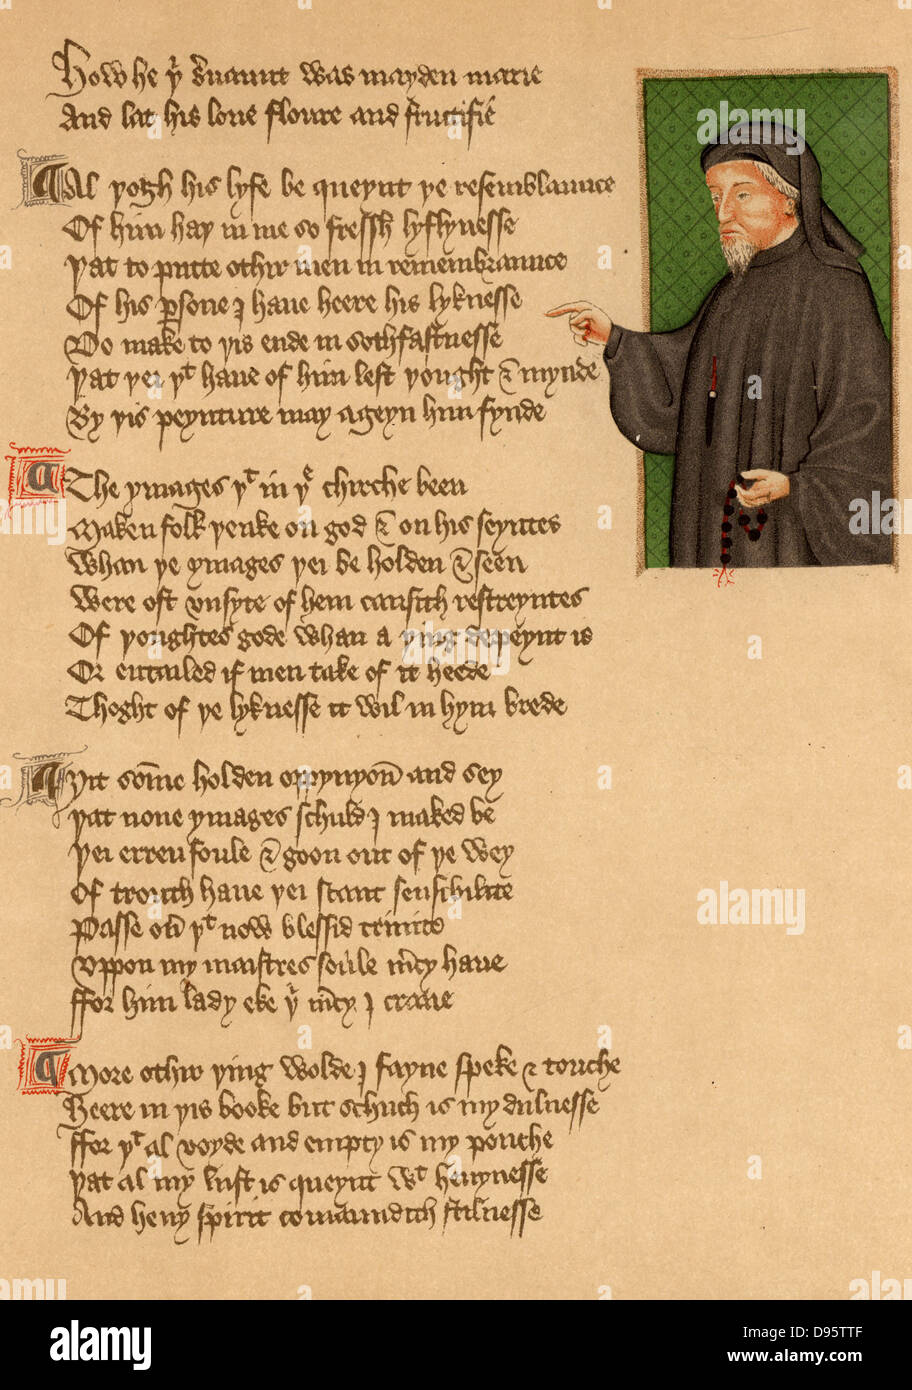 How he þʳ s̉uaunt was mayden marie
And lat his loue floure and fructifie
Al þogh his lyfe be queynt þe resemblaunce
Of him haþ in me so fressh lyflynesse
Þat to putte othir men in remembraunce
Of his ꝑsone I haue heere his lyknesse
Do make to þis ende in sothfastnesse
Þat þei þᵗ haue of him left þought & mynde
By þis peynture may ageyn him fynde
The ymages þᵗ in þͤ chirche been
Maken folk þenke on god & on his seyntes
Whan þe ymages þei be holden & seen
Were oft vnsyte of hem causith restreyntes
Of þoughtes gode whan a þing depeynt is
Or entailed if men take of it heede
Thoght of þe lyknesse it wil in hym brede
Ȝit som̄e holden oppynyoū and sey
Þat none ymages schuld I maked be
Þei erren foule & goon out of þe wey
Of trouth haue þei scant sensibilite
Passe ou̕ þᵗ now blessid trinite
Vppon my maistres soule m̕cy haue
ffor him lady eke þʳ m̕cy I craue
More othir þing wolde I fayne speke & touche
Heere in þis booke but schuch is my dulnesse
ffor þᵗ al voyde and empty is my pouche
Þat al my lust is queynt wᵗ heuynesse
And heuy spirit comaundith stilnesse
alamy
alamy
Image ID: D95TTF
www.alamy.com